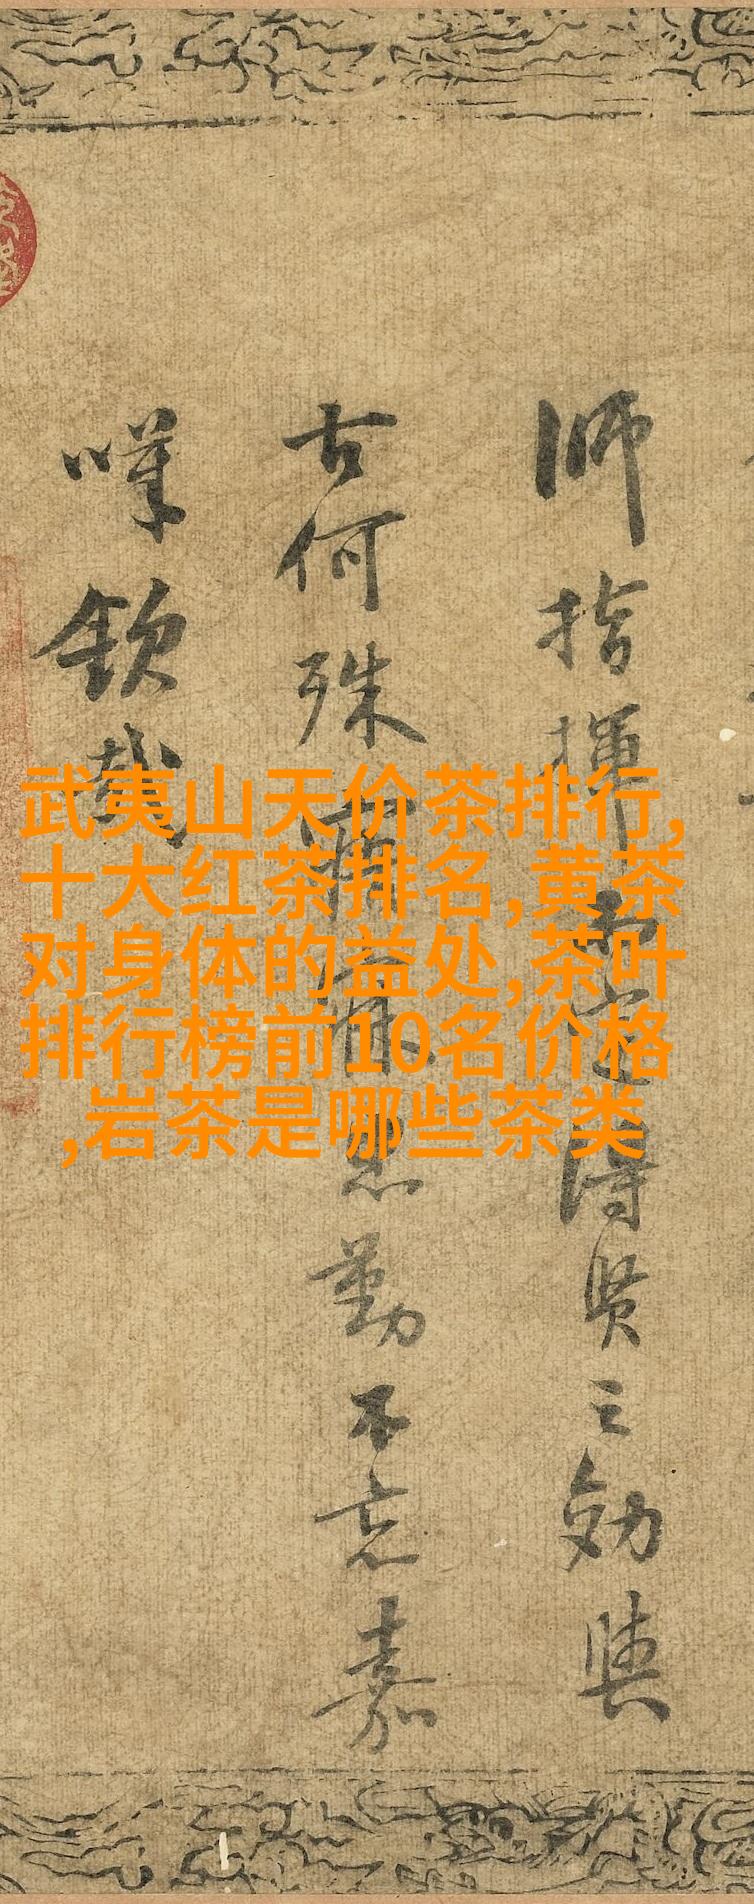 師指揮而定得賢之効與
古何殊寤寐忠勤不忘嘉
嘆欽哉
武夷山天价茶排行,
十大红茶排名,黄茶
对身体的益处,茶叶
排行榜前10名价格
,岩茶是哪些茶类